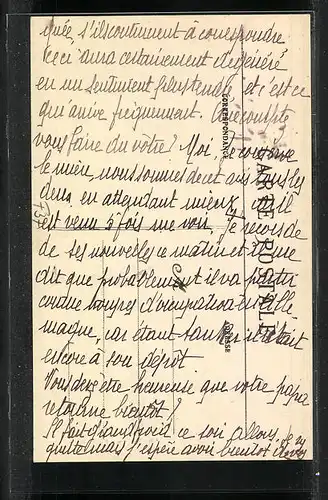 quée, s'ils continuent à correspondre
ceci aura certainement dégénéré
en un sentiment plus tendre et c'est ce
qui arrive fréquemment. Que compte
vous faire du vôtre? Moi,
le mien, nous sommes de cet avis tous les
deux, en attendant mieux, il
est venu 3 fois me voir, je reçois de
de ses nouvelles ce matin et il me
dit que probablement il va partir
comme troupes d'occupation en Alle
magne, car étant il était
encore à son dépôt
Vous devez être heureuse que votre papa
retourne bientôt?
Il fait grand froid ce soir allons, je
quitte mais j'espère avoir bientôt
CORRESPONDANCE
CARTE POSTALE
ADRESSE